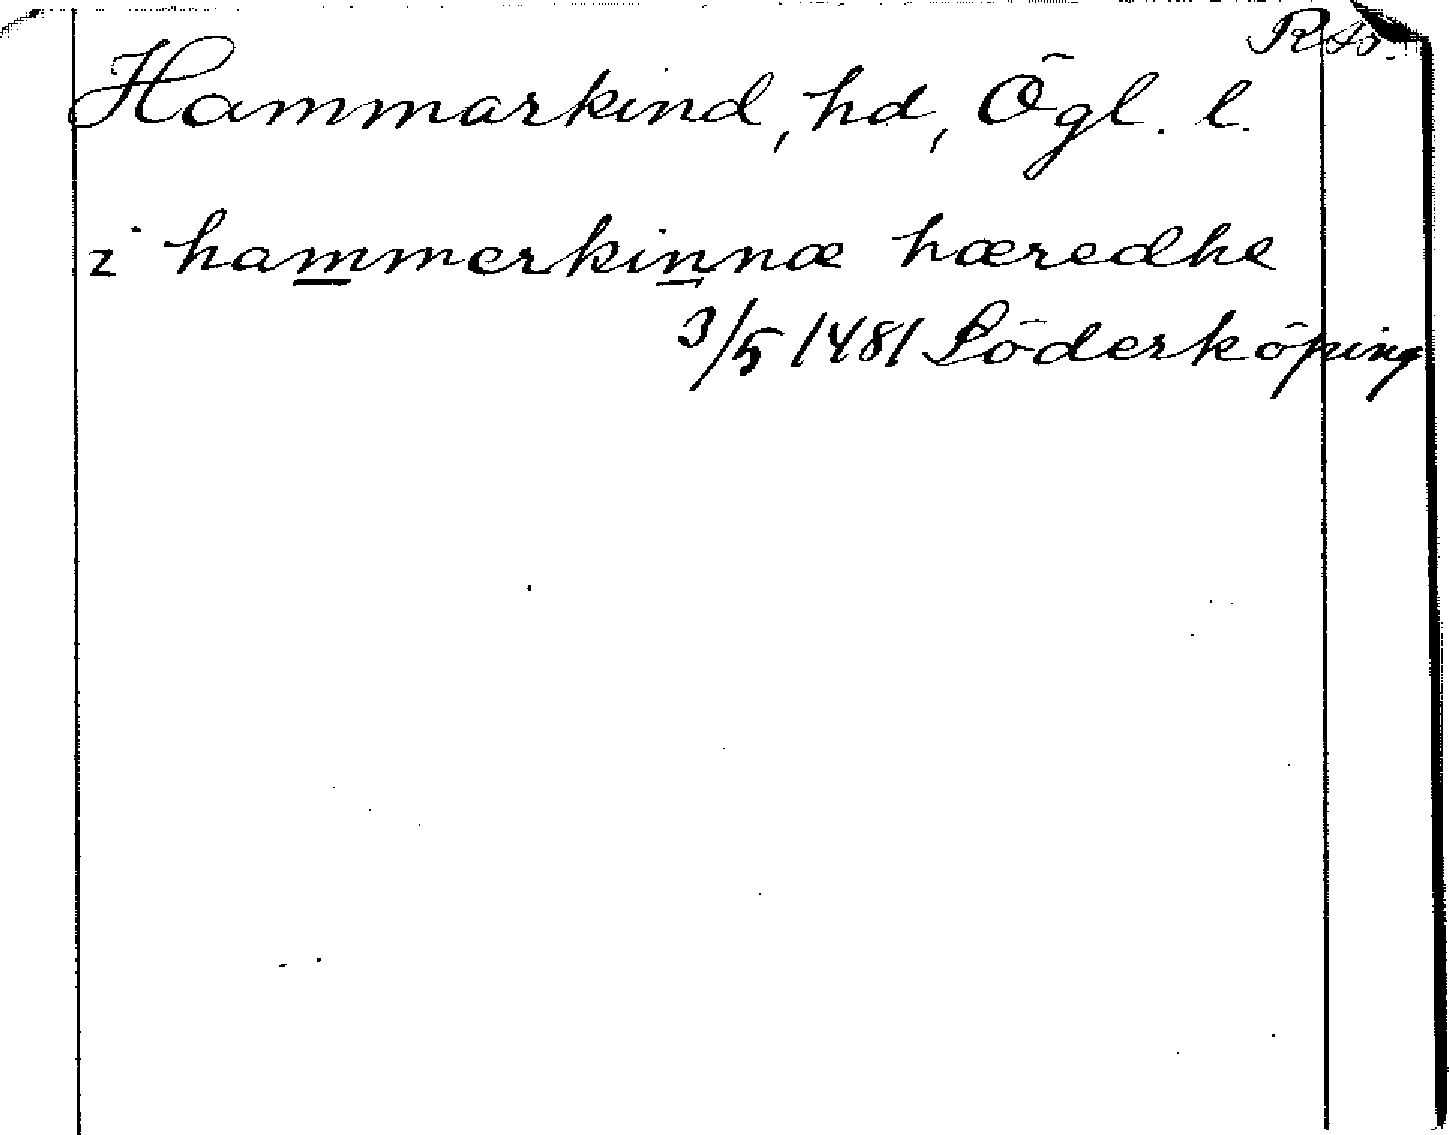 Hammarkind, hd, Ögl. l.
i hammerkinnæ hæredhe
3/5 1481 Söderköping